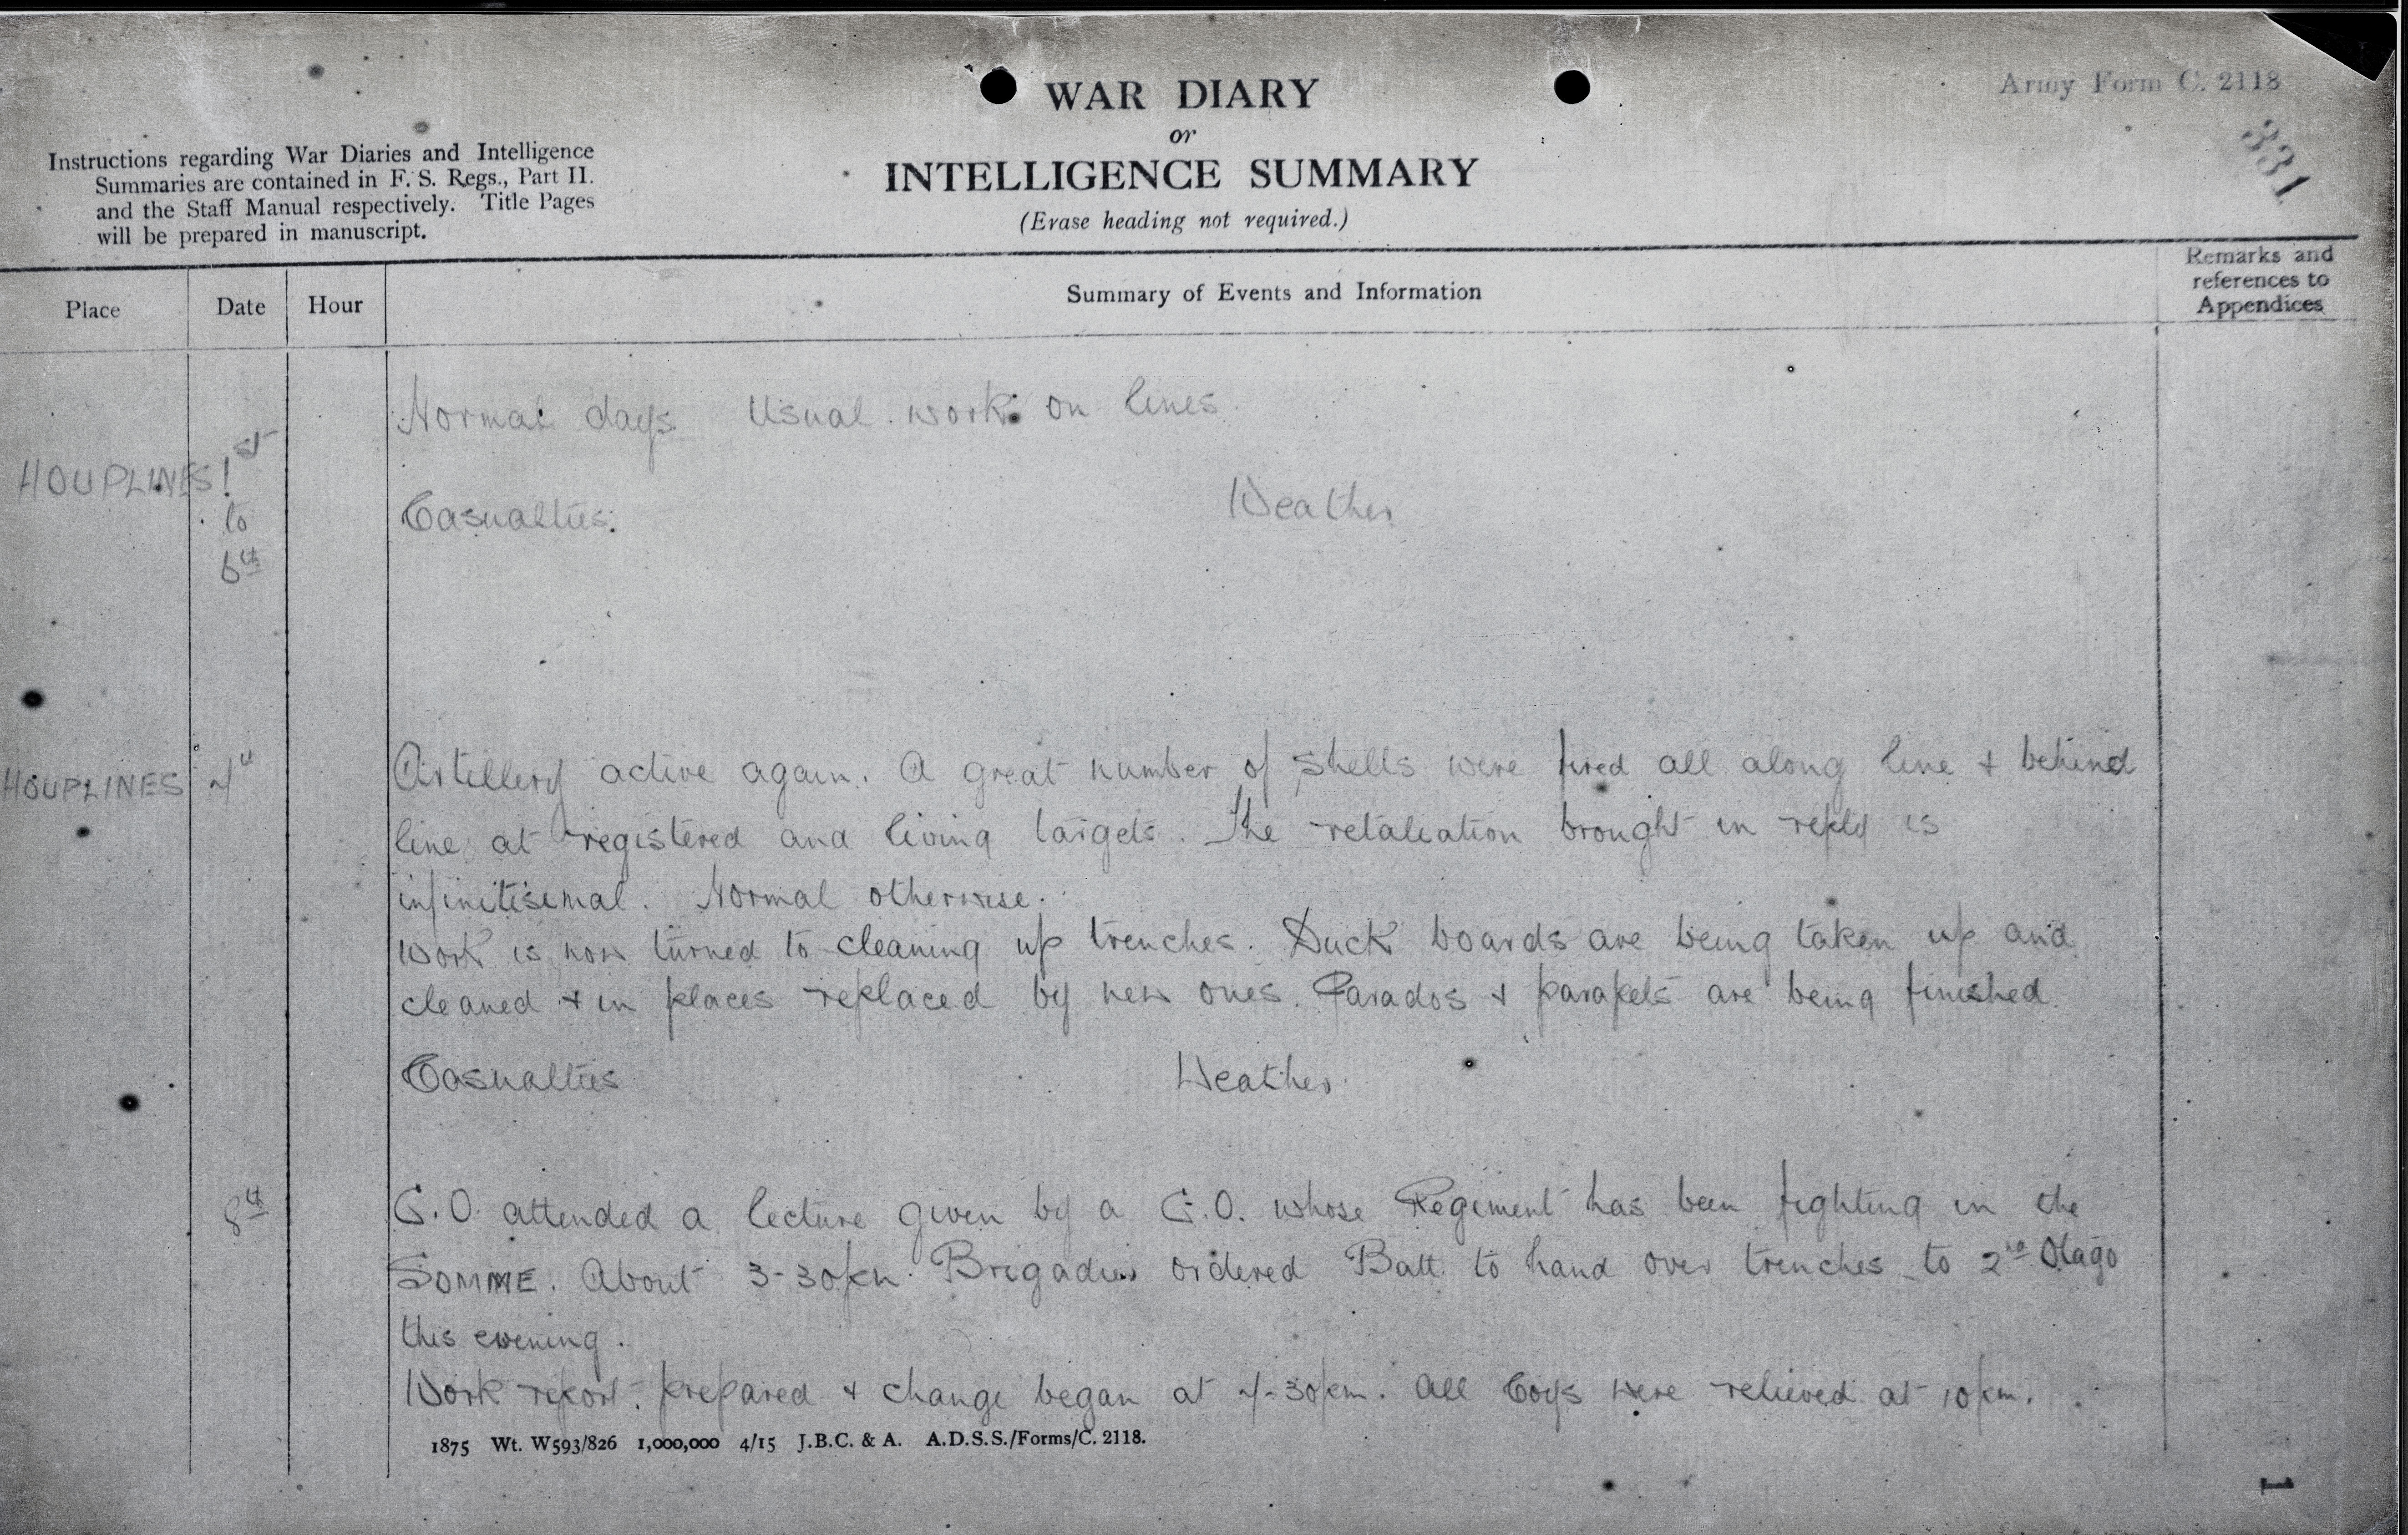 WAR DIARY
or
INTELLIGENCE SUMMARY
(Erase heading not required.)
Army Form C. 2118
331
Instructions regarding War Diaries and Intelligence
Summaries are contained in F. S. Regs., Part II.
and the Staff Manual respectively. Title Pages
will be prepared in manuscript.
Place Date Hour Summary of Events and Information Remarks and
references to
Appendices
Normal days. Usual work on lines.
HOUPLINES 1st
to
6th
Casualties. Weather
HOUPLINES 7th Artillery active again. A great number of shells were fired all along line & behind
line at registered and living targets. The retaliation brought in reply is
infinitisimal. Normal otherwise.
Work is now turned to cleaning up trenches. Duck boards are being taken up and
cleaned & in places replaced by new ones. Parados & parapets are being finished.
Casualties Weather.
8th C.O. attended a lecture given by a C.O. whose Regiment has been fighting in the
SOMME. About 3-30pm Brigadier ordered Batt. to hand over trenches to 2nd Otago
this evening.
Work report prepared & change began at 7-30pm. All Coys were relieved at 10pm.
1875 Wt. W593/826 1,000,000 4/15 J.B.C. & A. A.D.S.S./Forms/C. 2118.
1